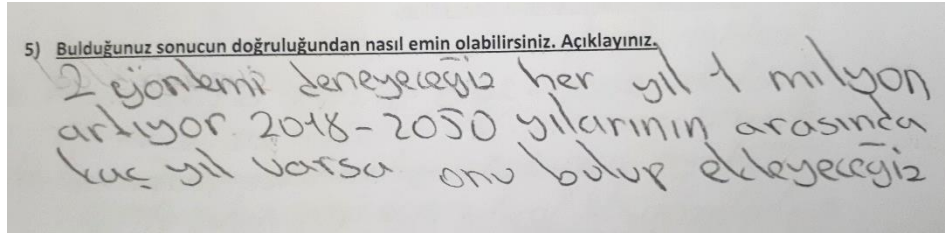 5) Bulduğunuz sonucun doğruluğundan nasıl emin olabilirsiniz. Açıklayınız.
2 yöntemi deneyeceğiz her yıl 1 milyon
artıyor. 2018-2050 yılarının arasında
kaç yıl varsa onu bulup ekleyeceğiz